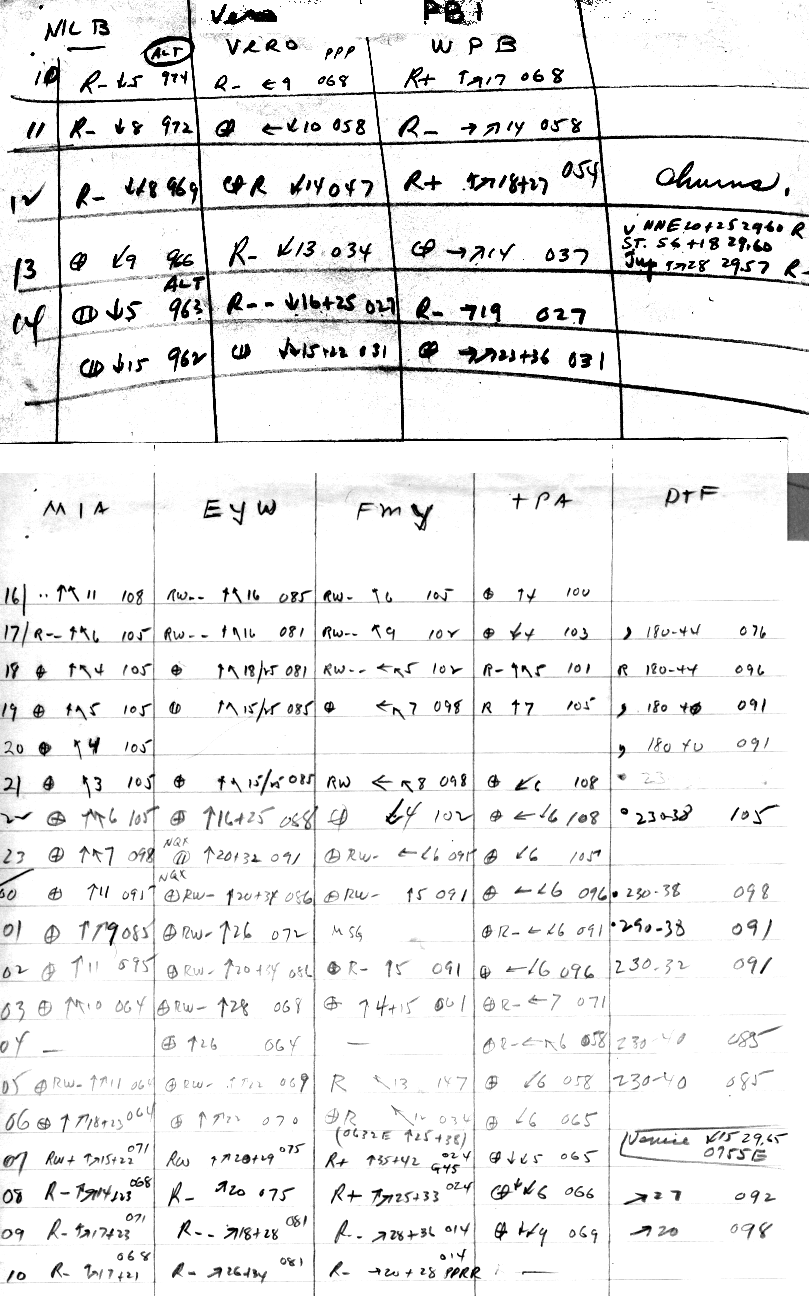 MLB Vero PB1
ALT VERO PPP WPB
10 R- ↓5 974 R- ←9 068 R+ ↑↗17 068
11 R- ↓8 972 ⊕ ←↙10 058 R- →↗14 058
12 R- ↓↙8 969 ⊕R ↙14 047 R+ ↑↗18+27 054
13 ⊕ ↙9 966 R- ↙13 034 ⊕ →↗14 037
NNE 20+25 2960 R
ST. 56+18 29.60
Jup 28 2957 R-
ALT
04 ⊕ ↓5 963 R-- ↓16+25 027 R- →19 027
↓15 962 ↓↙15+22 031 ⊕ →↗23+36 031
MIA EYW FMY TPA DTF
16 ·· ↑↖11 108 RW-- ↑↖16 085 RW- ↖6 105 ⊕ ↑4 100
17 R-- ↑↖6 105 RW-- ↑↖16 081 RW-- ↖9 102 ⊕ ↓4 103 , 180-44 076
18 ⊕ ↑↖4 105 ⊕ ↑↖18/25 081 RW-- ←↖5 102 R- ↑↖5 101 R 180-44 096
19 ⊕ ↑↖5 105 ⦶ ↑↖15/25 085 ⊕ ←↖7 098 R ↑7 105 , 180 40 091
20 ⊕ ↖4 105 , 180 40 091
21 ⊕ ↖3 105 ⊕ ↑↖15/25 085 RW ←↖8 098 ⊕ ↙6 108 · 23
22 ⊕ ↑↖6 105 ⊕ ↑16+25 088 ⦶ ↓4 102 ⊕ ←↙6 108 · 230-38 105
23 ⊕ ↑↖7 098 NQX ⦶ ↑20+32 091 ⊕RW- ←↙6 095 ⊕ ↙6 105
00 ⊕ ↑11 091 NQX ⊕RW- ↑20+34 086 ⊕RW- ↑5 091 ⊕ ←↙6 096 · 230-38 098
01 ⊕ ↑↗9 085 ⊕RW- ↑26 072 MSG ⊕R- ←↙6 091 · 290-38 091
02 ⊕ ↑11 095 ⊕RW- ↑20+34 086 ⊕R- ↑5 091 ⊕ ←↙6 096 230-32 091
03 ⊕ ↑↖10 064 ⊕RW- ↑28 068 ⊕ ↑4+15 061 ⊕R- ←7 071
04 — ⊕ ↑26 064 — ⊕R- ←↖6 058 230-40 085
05 ⊕RW- ↑↗11 064 ⊕RW- 069 R ↖13 147 ⊕ ↙6 058 230-40 085
06 ⊕ ↑↗18+23 064 ⊕ ↑↗22 070 ⊕R ↖ 034 ⊕ ↙6 065
(0632E ↑25+38)
07 RW+ ↑↗15+22 071 RW ↑↗20+29 075 R+ ↑35+42 024 G45 ⊕ ↓↙5 065 Venice ↙15 29.65 0755E
08 R- ↑↗14+23 068 R- ↗20 075 R+ ↑↗25+33 024 ⊕ ↓↙6 066 →27 092
09 R- ↑↗17+23 071 R-- ↗18+28 081 R-- ↗28+36 014 ⊕ ↓↙9 069 →20 098
10 R- ↑↗17+21 068 R- ↗26+34 081 R- →20+28 014 PPRR —